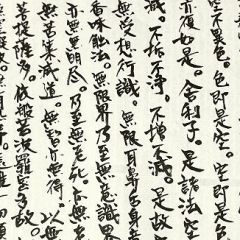 空不異色。色即是空。空即是
亦復如是。舍利子。是諸法空
滅。不垢不淨。不增不減。是故
無受想行識。無眼耳鼻舌身
香味觸法。無眼界乃至無意識界
亦無無明盡。乃至無老死。亦無老
無苦集滅道。無智亦無得。以無
菩提薩埵。依般若波羅蜜多故。